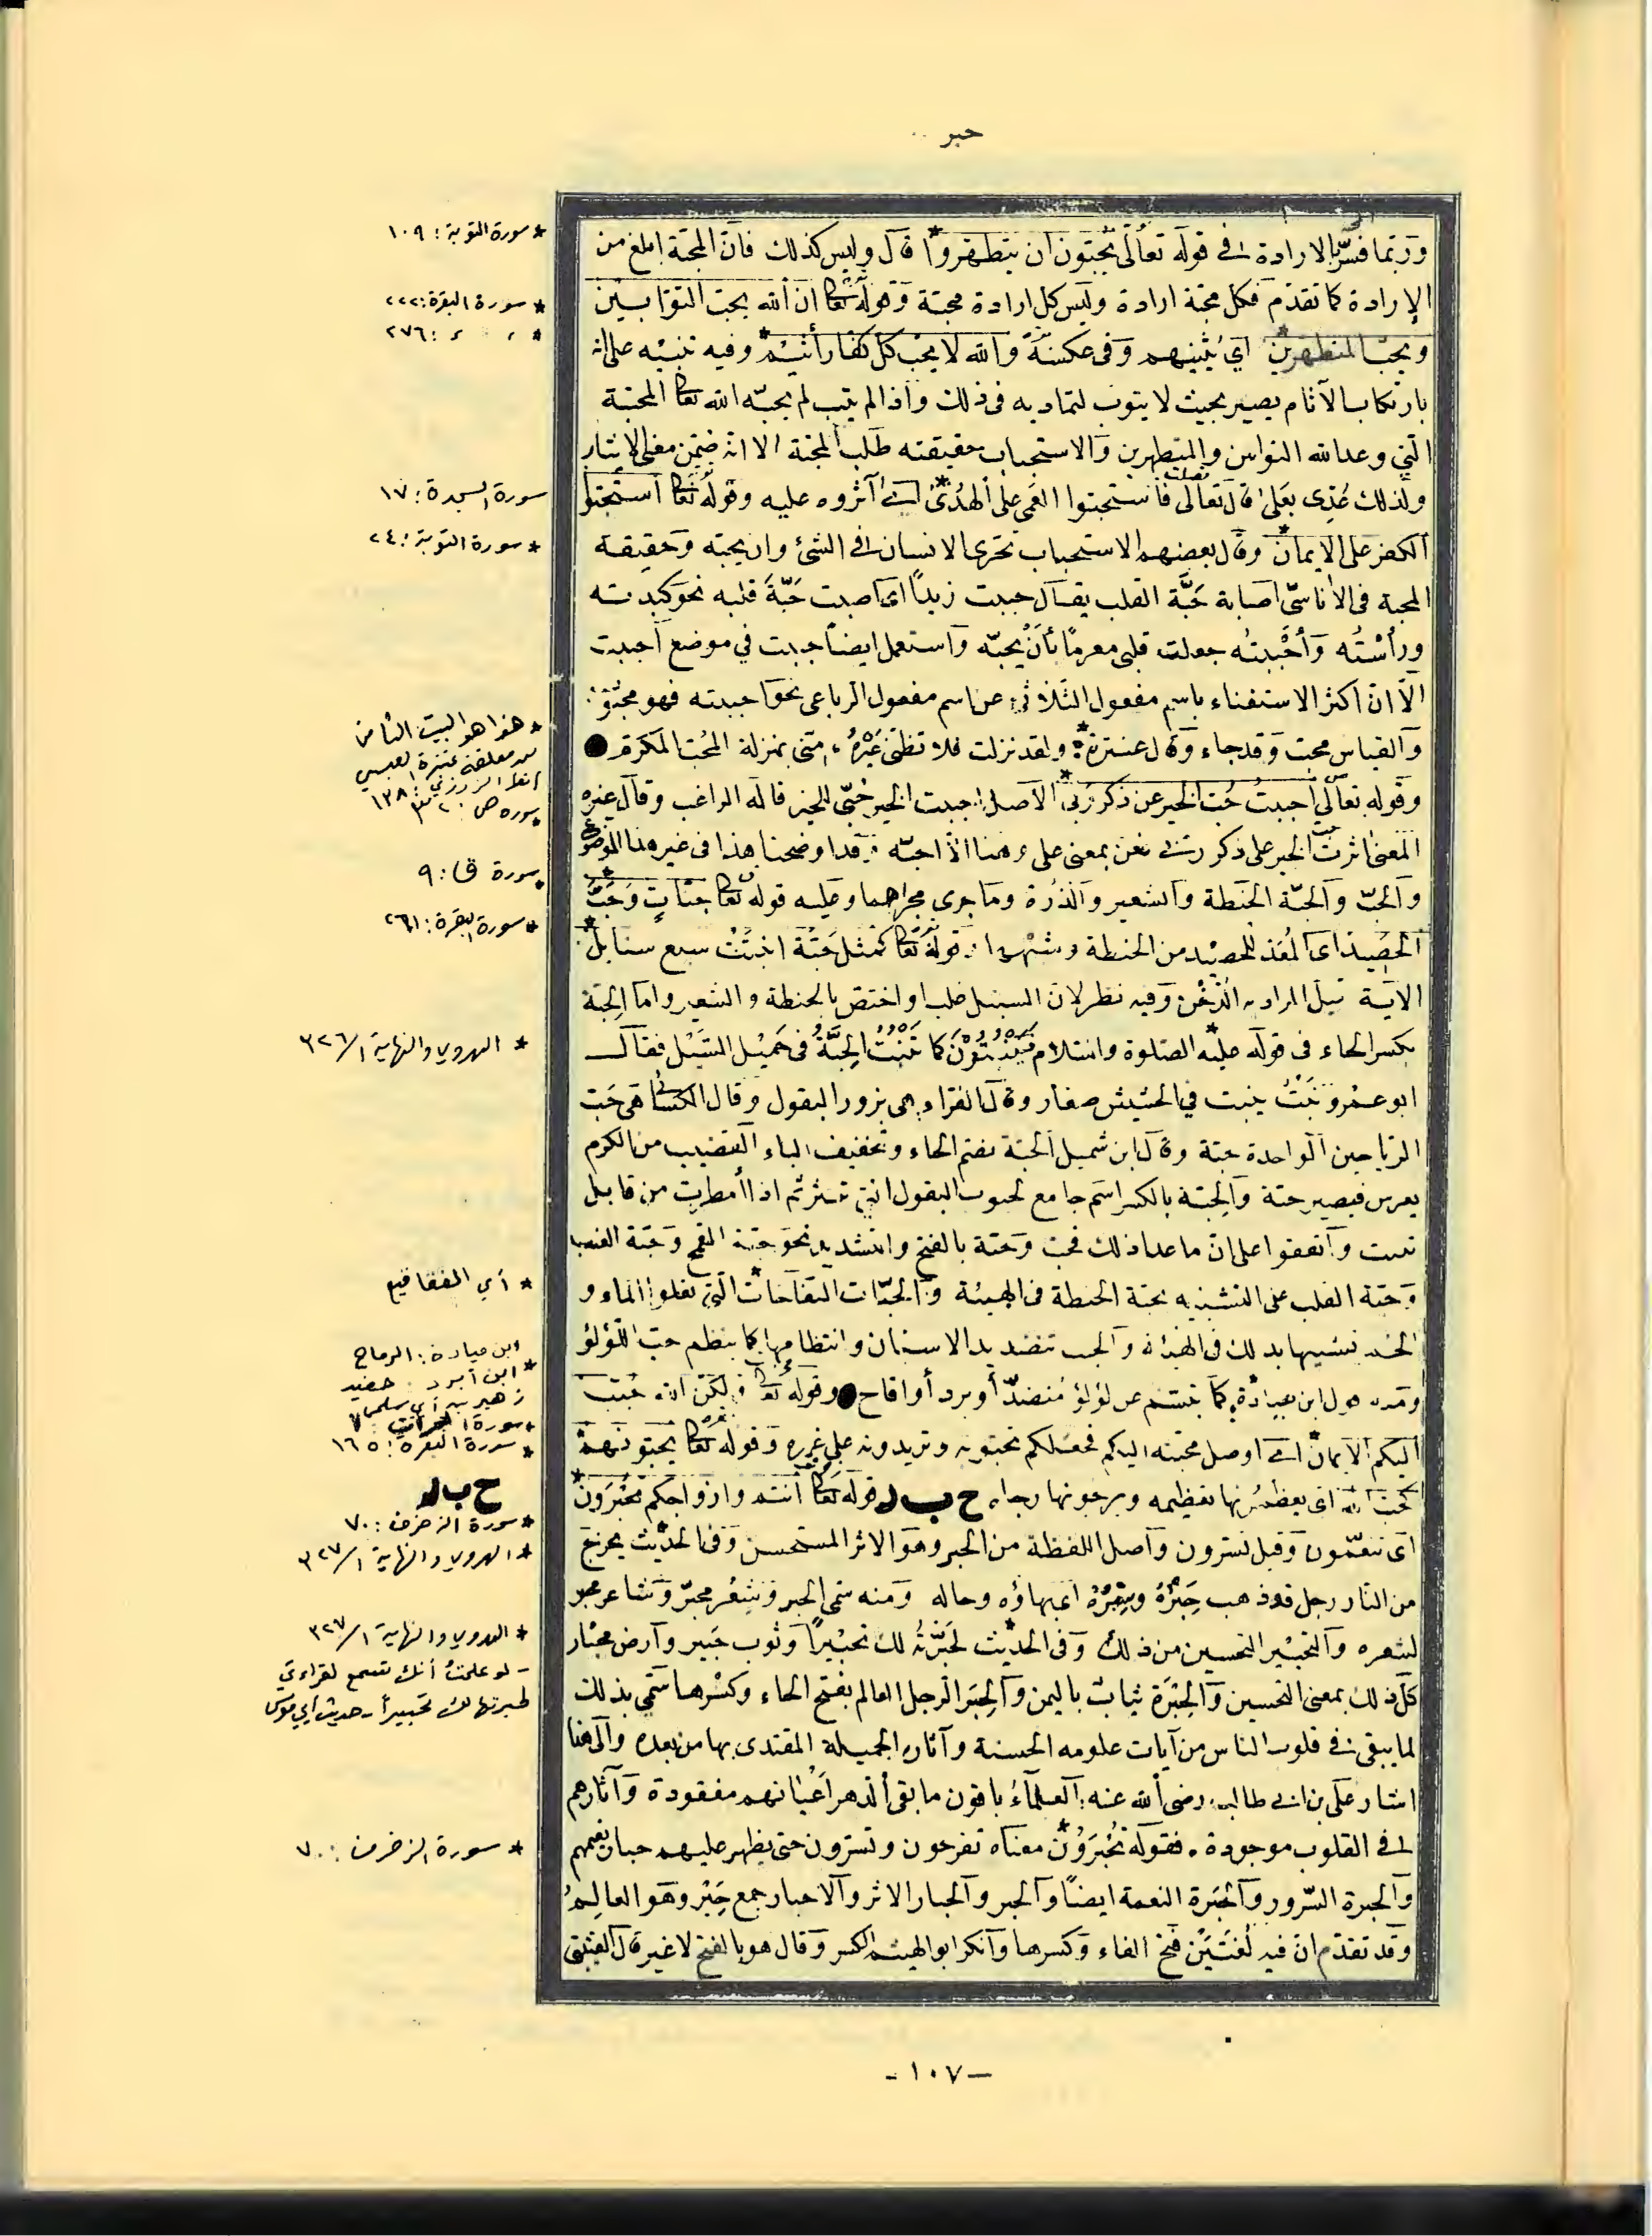 حبر
وربما فسر بالارادة في قوله تعالى يحبون ان يتطهروا* قال وليس كذلك فان المحبة ابلغ من
الإرادة كما تقدم فكل محبة ارادة وليس كل ارادة محبة وقوله تعالى ان الله يحب التوابين
ويحب المتطهرين* أي يثيبهم وفي عكسه والله لا يحب كل كفار أثيم* وفيه تنبيه على انه
بارتكاب الآثام يصير بحيث لا يتوب لتماديه في ذلك واذا لم يتب لم يحبه الله تعالى المحبة
التي وعد الله التوابين والمتطهرين والاستحباب حقيقته طلب المحبة الا انه ضمن معنى الايثار
ولذلك عدي بعلى قال تعالى فاستحبوا العمى على الهدى* اي آثروه عليه وقوله تعالى استحبوا
الكفر على الايمان* وقال بعضهم الاستحباب تحري الانسان في الشئ وان يحبه وحقيقة
المحبة في الاناسي اصابة حبة القلب يقال حببت زيدا اي اصبت حبة قلبه نحو كبدته
ورأسته وأحببته جعلت قلبي مغرما بأن يحبه واستعمل ايضا حببت في موضع احببت
الا ان اكثر الاستغناء باسم مفعول الثلاثي عن اسم مفعول الرباعي نحو احببته فهو محبوب
والقياس محب وقد جاء وقال عنترة* ولقد نزلت فلا تظني غيره مني بمنزلة المحب المكرم
وقوله تعالى أحببت حب الخير عن ذكر ربي* الاصل احببت الخير حبي للخير قاله الراغب وقال غيره
المعنى اثرت حب الخير على ذكر ربي فعن بمعنى على وقد اوضحنا هذا في غير هذا الموضع
والحب والحبة الحنطة والشعير والذرة وما جرى مجراهما وعليه قوله تعالى جنات وحب
الحصيد* اي المعد للحصيد من الحنطة وشبهها وقوله تعالى كمثل حبة انبتت سبع سنابل*
الاية قيل المراد به الدخن وفيه نظر لان السنبل غلب واختص بالحنطة والشعير واما الحبة
بكسر الحاء في قوله عليه الصلوة والسلام* فينبتون كما تنبت الحبة في حميل السيل فقال
ابو عمرو نبت ينبت في الحشيش صغار وقال الفراء هي بزور البقول وقال الكسائي هي حب
الرياحين الواحدة حبة وقال ابن شميل الحبة بضم الحاء وتخفيف الباء القضيب من الكرم
يغرس فيصير حبة والحبة بالكسر اسم جامع لحبوب البقول التي تنتثر ثم اذا أمطرت من قابل
نبتت واتفقوا على ان ما عدا ذلك فحب وحبة بالفتح والتشديد نحو حبة القمح وحبة العنب
وحبة القلب على التشبيه بحبة الحنطة في الهيئة والحبات النفاخات* التي تعلوا الماء و
الخمر تشبيها بذلك في الهيئة والحبب تنضد يد الاسنان وانتظامها كما ينظم حب اللؤلؤ
ومنه قول ابن ميادة* كما تبتسم عن لؤلؤ منضد أو برد أو اقاح وقوله تعالى ولكن الله حبب
اليكم الايمان* اي اوصل محبته اليكم فجعلكم تحبونه وتريدونه على غيره وقوله تعالى يحبونهم*
كحب الله اي يعظمونها تعظيمه ويرجونها رجاه ح ب ر قوله تعالى أنتم وازواجكم تحبرون*
اي تنعمون وقيل تسرون واصل اللفظة من الحبر وهو الاثر المستحسن وفي الحديث* يخرج
من النار رجل قد ذهب حبره وسبره اي بهاؤه وحاله ومنه سمي الحبر وشعر محبر وشاعر محبر
لشعره والتحبير التحسين من ذلك وفي الحديث* لحبرته لك تحبيرا وثوب حبير وأرض محبار
كل ذلك بمعنى التحسين والحبرة ثياب باليمن والحبر الرجل العالم بفتح الحاء وكسرها سمي بذلك
لما يبقى في قلوب الناس من آيات علومه الحسنة وآثاره الجميلة المقتدى بها من بعده والى هذا
اشار علي بن ابي طالب رضي الله عنه العلماء باقون ما بقي الدهر اعيانهم مفقودة وآثارهم
في القلوب موجودة. فقوله تحبرون* معناه تفرحون وتسرون حتى يظهر عليهم حبار نعيمهم
والحبرة السرور والحبرة النعمة ايضا والحبر والحبار الاثر والاحبار جمع حبر وهو العالم
وقد تقدم ان فيه لغتين فتح الفاء وكسرها وأنكر ابو الهيثم الكسر وقال هو بالفتح لا غير قال القتيبي
* سورة التوبة: ١٠٩
* سورة البقرة: ٢٢٢
* ، ، : ٢٧٦
سورة السجدة: ١٧
* سورة التوبة: ٢٤
* هذا هو البيت الثامن
من معلقة عنترة العبسي
انظر الزوزني: ١٣٨
* سورة ص: ٣٢
* سورة ق: ٩
* سورة البقرة: ٢٦١
* الهروي والنهاية ٣٢٦/١
* أي الفقاقيع
ابن ميادة: الرماح
* ابن أبرد. حفيد
زهير بن أبي سلمى
* سورة الحجرات: ٧
* سورة البقرة: ١٦٥
ح ب ر
* سورة الزخرف: ٧٠
* الهروي والنهاية ٣٢٧/١
* الهروي والنهاية ٣٢٧/١
- لو علمت أنك تسمع لقراءتي
لحبرتها لك تحبيراً - حديث أبي موسى
* سورة الزخرف: ٧٠
- ١٠٧ -